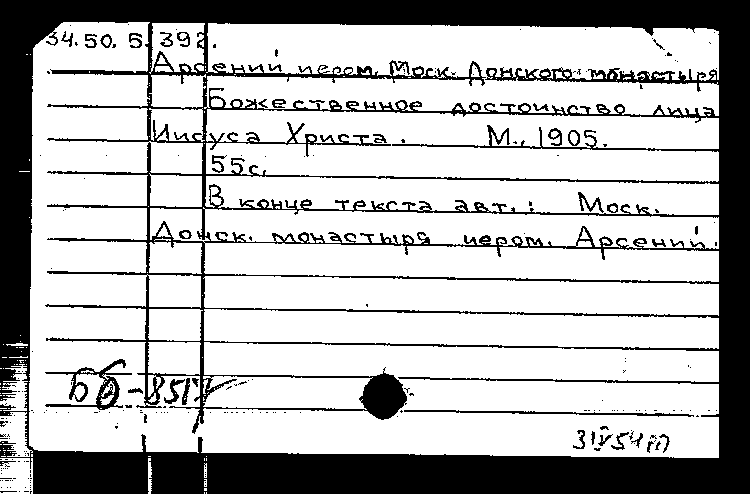 34.50.5.392.
Арсений, иером. Моск. Донского монастыря
Божественное достоинство лица
Иисуса Христа. М., 1905.
55с.
В конце текста авт.: Моск.
Донск. монастыря иером. Арсений.
Бб-8517
31 V 54 m